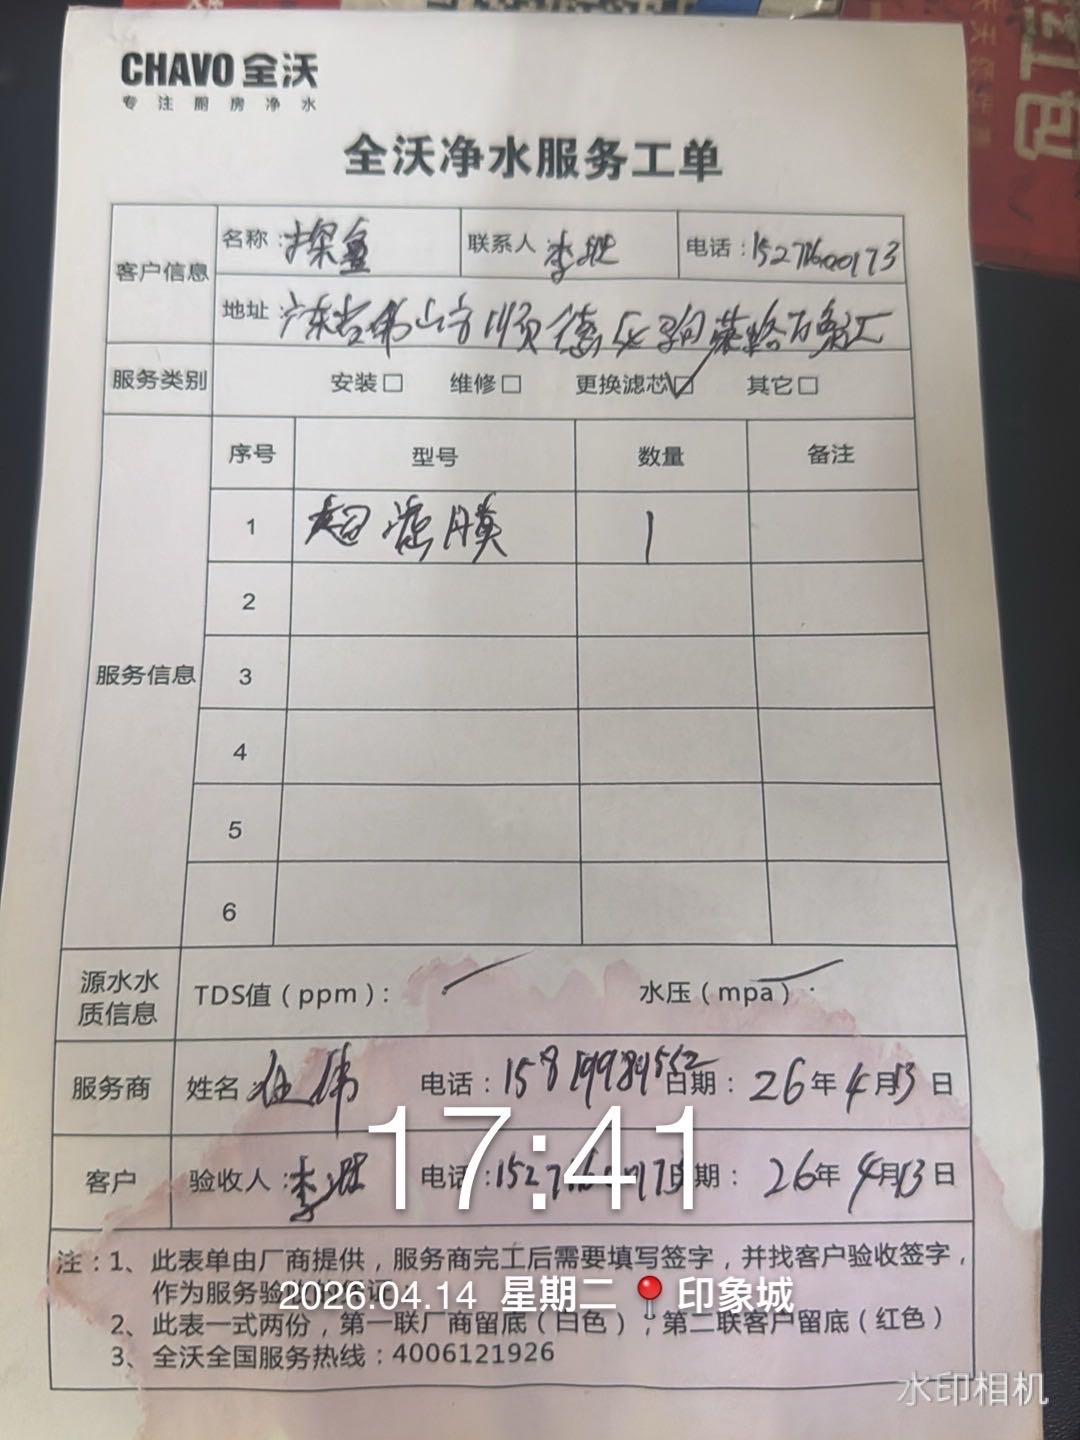 CHAVO 全沃
专注厨房净水
全沃净水服务工单
客户信息 名称：探鱼 联系人：李 电话：15271600173
地址：广东省佛山市顺德区 百家汇
服务类别 安装□ 维修□ 更换滤芯☑ 其它□
服务信息 序号 型号 数量 备注
1 超滤膜 1
2
3
4
5
6
源水水质信息 TDS值（ppm）： 水压（mpa）：
服务商 姓名：伍伟 电话：15819989552 日期：26年4月13日
客户 验收人：李 电话：15271600173 日期：26年4月13日
17:41
注：1、此表单由厂商提供，服务商完工后需要填写签字，并找客户验收签字，
作为服务验收的凭证；
2026.04.14 星期二 印象城
2、此表一式两份，第一联厂商留底（白色），第二联客户留底（红色）
3、全沃全国服务热线：4006121926
水印相机